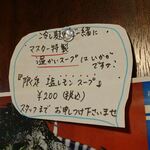 冷し麺と一緒に
マスター特製
温かいスープはいかがですか?
塩レモンスープ』
¥200(税込)
スタッフまでお申しつけ下さいませ